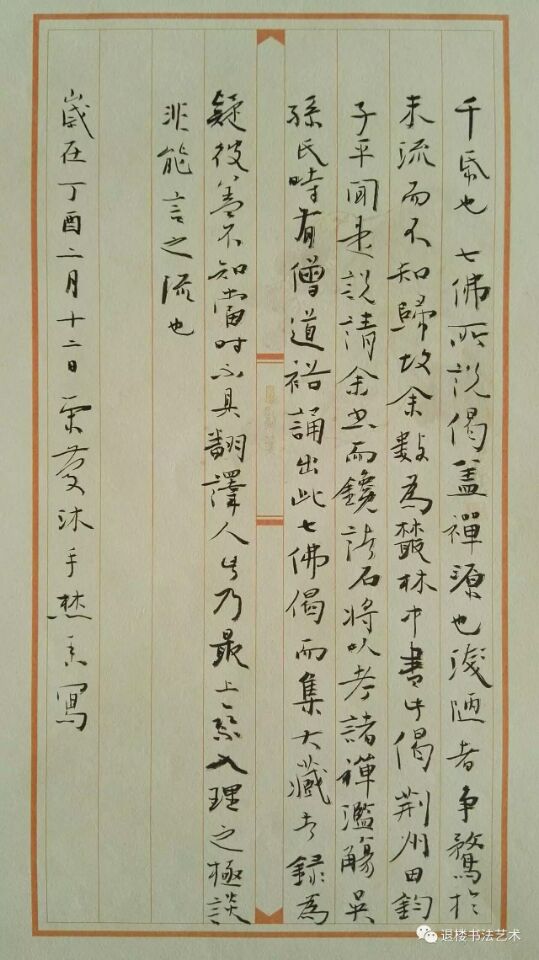 千 也七佛所説偈盖禪源也淺陋者争鶩於
末流而不知歸故余數為叢林中書此偈荆州田鈞
子平聞是説請余書而鑱諸石將以考諸禪濫觴吳
孫氏時有僧道裕誦出此七佛偈而集大藏者録為
疑彼盖不知當時不具翻譯人此乃最上 入理之極談
非能言之流也
歲在丁酉二月十二日 沐手 寫
退楼书法艺术